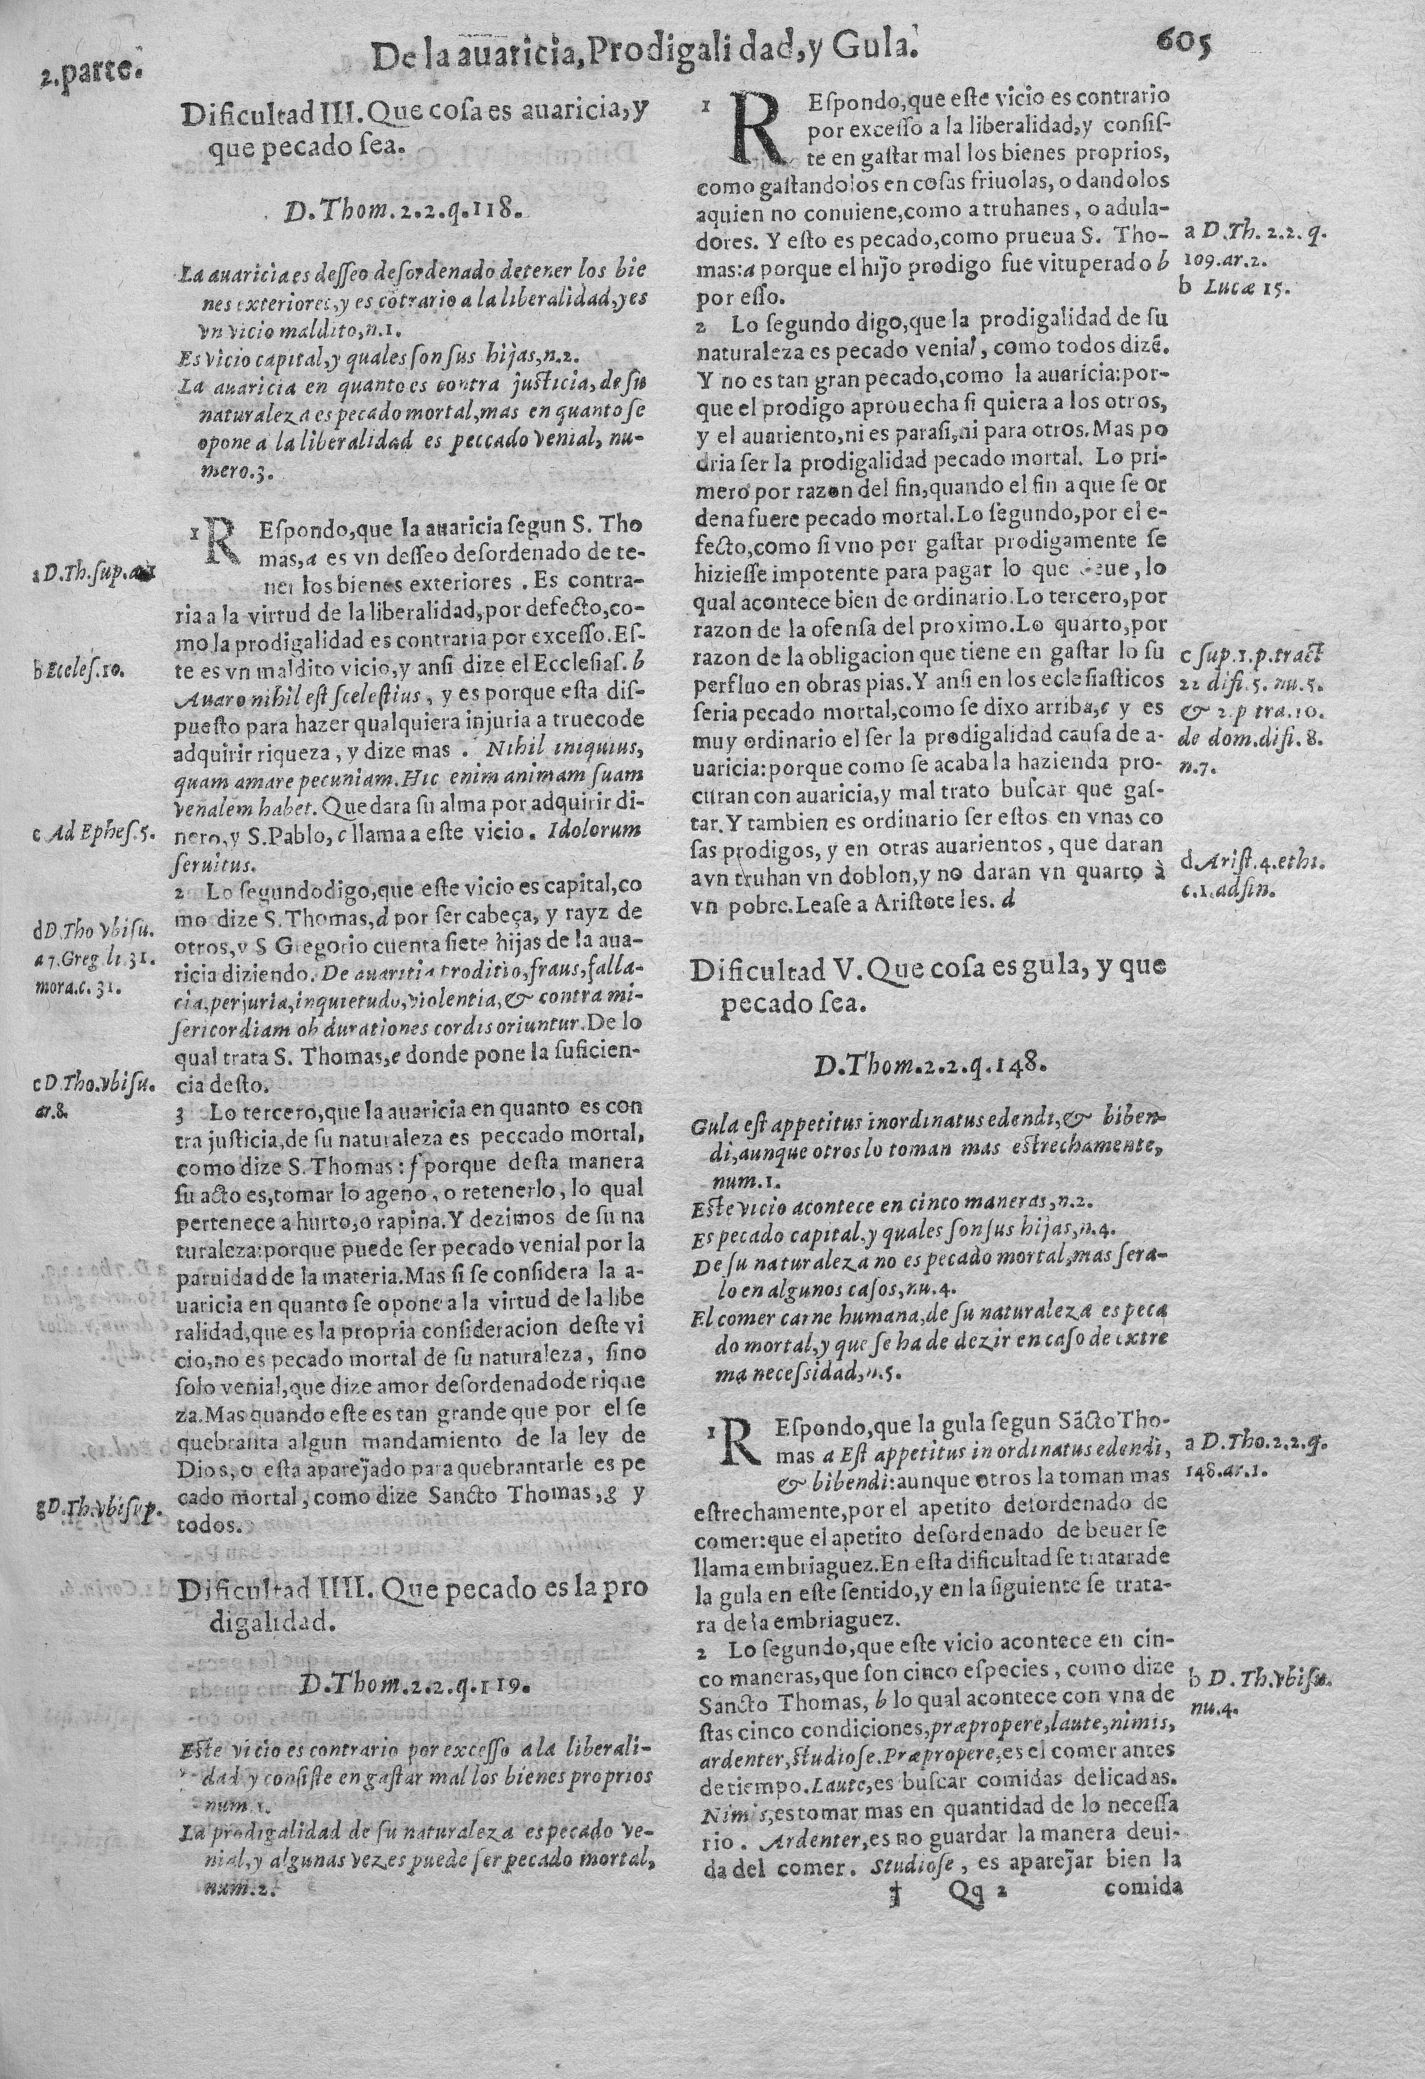 2.parte.
De la auaricia, Prodigalidad, y Gula.
605
Dificultad III. Que cosa es auaricia, y
que pecado sea.
D. Thom. 2. 2. q. 118.
La auaricia es desseo desordenado de tener los bie
nes exteriores, y es cōtrario a la liberalidad, y es
vn vicio maldito, n. 1.
Es vicio capital, y quales son sus hijas, n. 2.
La auaricia en quanto es contra justicia, de su
naturaleza es pecado mortal, mas en quanto se
opone a la liberalidad es peccado venial, nu-
mero. 3.
1 REspondo, que la auaricia segun S. Tho
mas, a es vn desseo desordenado de te-
ner los bienes exteriores. Es contra-
ria a la virtud de la liberalidad, por defecto, co-
mo la prodigalidad es contraria por excesso. Es-
te es vn maldito vicio, y ansi dize el Ecclesias. b
Auaro nihil est scelestius, y es porque esta dis-
puesto para hazer qualquiera injuria a truecode
adquirir riqueza, y dize mas. Nihil iniquius,
quam amare pecuniam. Hic enim animam suam
venalem habet. Que dara su alma por adquirir di-
nero, y S. Pablo, c llama a este vicio. Idolorum
seruitus.
2 Lo segundo digo, que este vicio es capital, co
mo dize S. Thomas, d por ser cabeça, y rayz de
otros, y S Gregorio cuenta siete hijas de la aua-
ricia diziendo. De auaritia proditio, fraus, falla-
cia, perjuria, inquietudo, violentia, & contra mi-
sericordiam obdurationes cordis oriuntur. De lo
qual trata S. Thomas, e donde pone la suficien-
cia desto.
3 Lo tercero, que la auaricia en quanto es con
tra justicia, de su naturaleza es peccado mortal,
como dize S. Thomas: f porque desta manera
su acto es, tomar lo ageno, o retenerlo, lo qual
pertenece a hurto, o rapina. Y dezimos de su na
turaleza: porque puede ser pecado venial por la
paruidad de la materia. Mas si se considera la a-
uaricia en quanto se opone a la virtud de la libe
ralidad, que es la propria consideracion deste vi
cio, no es pecado mortal de su naturaleza, sino
solo venial, que dize amor desordenado de rique
za. Mas quando este es tan grande que por el se
quebranta algun mandamiento de la ley de
Dios, o esta aparejado para quebrantarle es pe
cado mortal, como dize Sancto Thomas, g y
todos.
a D. Th. sup. a. 1
b Eccles. 10.
c Ad Ephes. 5.
d D. Tho vbi su.
a 7. Greg li. 31.
mora. c. 31.
e D. Tho. vbi su.
ar. 8.
g D. Th. vbi sup.
Dificultad IIII. Que pecado es la pro
digalidad.
D. Thom. 2. 2. q. 119.
Este vicio es contrario por excesso a la liberali-
dad y consiste en gastar mal los bienes proprios
num. 1.
La prodigalidad de su naturaleza es pecado ve-
nial, y algunas vezes puede ser pecado mortal,
num. 2.
1 REspondo, que este vicio es contrario
por excesso a la liberalidad, y consis-
te en gastar mal los bienes proprios,
como gastandolos en cosas friuolas, o dandolos
aquien no conuiene, como a truhanes, o adula-
dores. Y esto es pecado, como prueua S. Tho-
mas: a porque el hijo prodigo fue vituperado b
por esso.
2 Lo segundo digo, que la prodigalidad de su
naturaleza es pecado venial, como todos dizē.
Y no es tan gran pecado, como la auaricia: por-
que el prodigo aprouecha si quiera a los otros,
y el auariento, ni es para si, ni para otros. Mas po
dria ser la prodigalidad pecado mortal. Lo pri-
mero por razon del fin, quando el fin a que se or
dena fuere pecado mortal. Lo segundo, por el e-
fecto, como si vno por gastar prodigamente se
hiziesse impotente para pagar lo que deue, lo
qual acontece bien de ordinario. Lo tercero, por
razon de la ofensa del proximo. Lo quarto, por
razon de la obligacion que tiene en gastar lo su
perfluo en obras pias. Y ansi en los eclesiasticos
seria pecado mortal, como se dixo arriba, c y es
muy ordinario el ser la prodigalidad causa de a-
uaricia: porque como se acaba la hazienda pro-
curan con auaricia, y mal trato buscar que gas-
tar. Y tambien es ordinario ser estos en vnas co
sas prodigos, y en otras auarientos, que daran
avn truhan vn doblon, y no daran vn quarto à
vn pobre. Lease a Aristoteles. d
a D. Th. 2. 2. q.
109. ar. 2.
b Lucæ 15.
c sup. 1. p. tract
22 difi. 5. nu. 5.
& 2. p tra. 10.
de dom. difi. 8.
n. 7.
d Arist. 4. ethi.
c. 1. ad fin.
Dificultad V. Que cosa es gula, y que
pecado sea.
D. Thom. 2. 2. q. 148.
Gula est appetitus inordinatus edendi, & biben-
di, aunque otros lo toman mas estrechamente,
num. 1.
Este vicio acontece en cinco maneras, n. 2.
Es pecado capital, y quales son sus hijas, n. 4.
De su naturaleza no es pecado mortal, mas sera-
lo en algunos casos, nu. 4.
El comer carne humana, de su naturaleza es peca
do mortal, y que se ha de dezir en caso de extre
ma necessidad, n. 5.
1 REspondo, que la gula segun Sācto Tho-
mas a Est appetitus inordinatus edendi,
& bibendi: aunque otros la toman mas
estrechamente, por el apetito desordenado de
comer: que el apetito desordenado de beuer se
llama embriaguez. En esta dificultad se tratarade
la gula en este sentido, y en la siguiente se trata-
ra de la embriaguez.
2 Lo segundo, que este vicio acontece en cin-
co maneras, que son cinco especies, como dize
Sancto Thomas, b lo qual acontece con vna de
stas cinco condiciones, præpropere, laute, nimis,
ardenter, studiose. Præpropere, es el comer antes
de tiempo. Laute, es buscar comidas delicadas.
Nimis, es tomar mas en quantidad de lo necessa
rio. Ardenter, es no guardar la manera deui-
da del comer. Studiose, es aparejar bien la
a D. Tho. 2. 2. q.
148. ar. 1.
b D. Th. vbi su.
nu. 4.
† Qq 2 comida